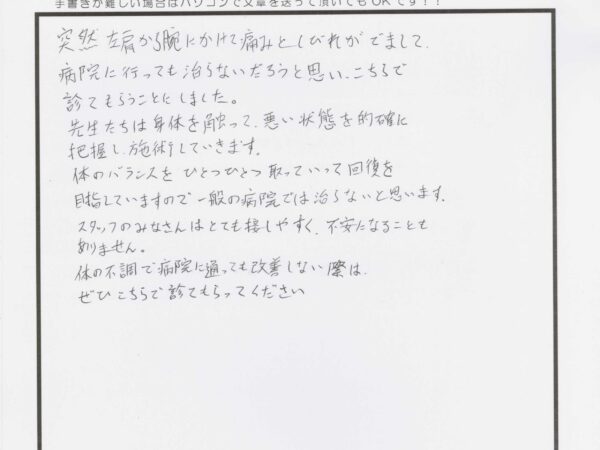 手書きが難しい場合はパソコンで文章を送って頂いてもOKです！！
突然 左肩から腕にかけて痛みとしびれがでまして、
病院に行っても治らないだろうと思い、こちらで
診てもらうことにしました。
先生たちは身体を触って、悪い状態を的確に
把握し、施術していきます。
体のバランスを ひとつひとつ 取っていって 回復を
目指していますので 一般の病院では治らないと思います。
スタッフのみなさんはとても接しやすく、不安になることも
ありません。
体の不調で病院に通っても改善しない際は、
ぜひ こちらで診てもらってください